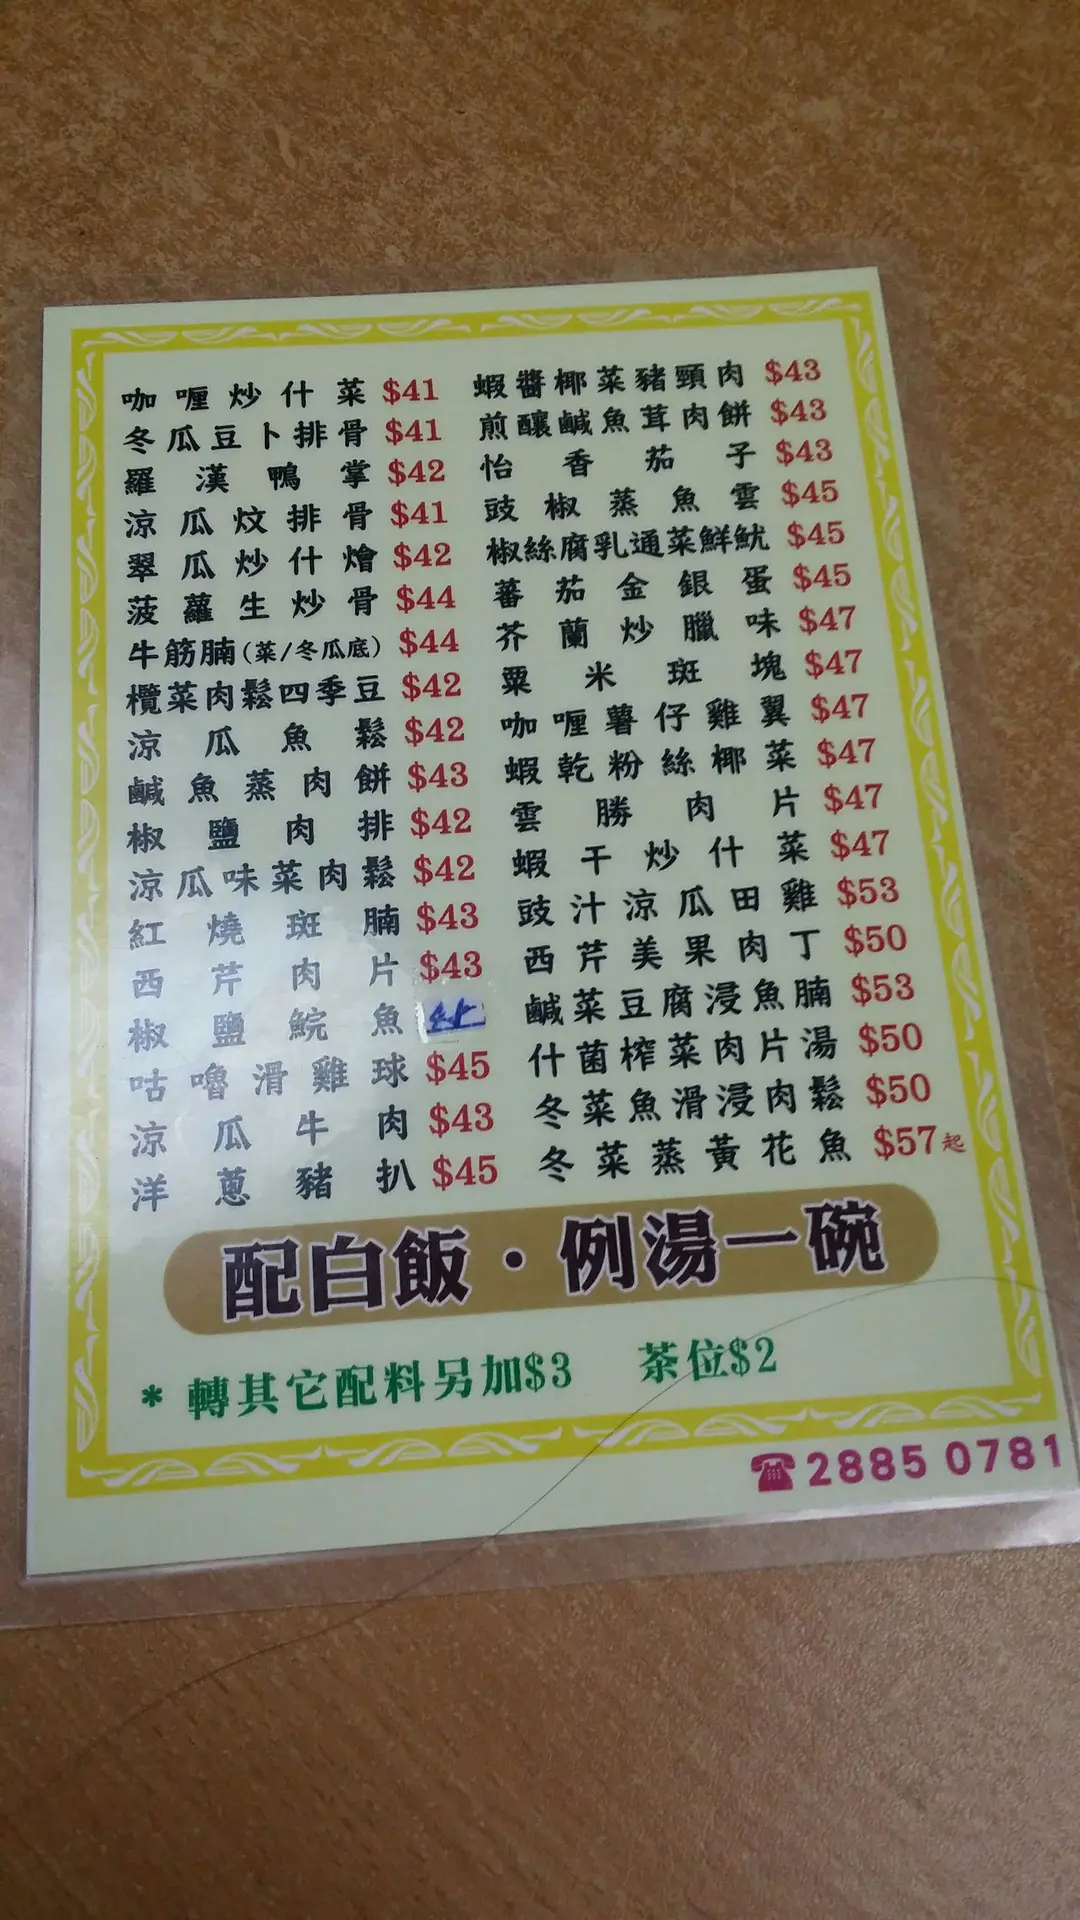 咖喱炒什菜 $41
冬瓜豆卜排骨 $41
羅漢鴨掌 $42
涼瓜炆排骨 $41
翠瓜炒什燴 $42
菠蘿生炒骨 $44
牛筋腩(菜/冬瓜底) $44
欖菜肉鬆四季豆 $42
涼瓜魚鬆 $42
鹹魚蒸肉餅 $43
椒鹽肉排 $42
涼瓜味菜肉鬆 $42
紅燒斑腩 $43
西芹肉片 $43
椒鹽鯇魚
咕嚕滑雞球 $45
涼瓜牛肉 $43
洋蔥豬扒 $45
蝦醬椰菜豬頸肉 $43
煎釀鹹魚茸肉餅 $43
怡香茄子 $43
豉椒蒸魚雲 $45
椒絲腐乳通菜鮮魷 $45
蕃茄金銀蛋 $45
芥蘭炒臘味 $47
粟米斑塊 $47
咖喱薯仔雞翼 $47
蝦乾粉絲椰菜 $47
雲勝肉片 $47
蝦干炒什菜 $47
豉汁涼瓜田雞 $53
西芹美果肉丁 $50
鹹菜豆腐浸魚腩 $53
什菌榨菜肉片湯 $50
冬菜魚滑浸肉鬆 $50
冬菜蒸黃花魚 $57起
配白飯·例湯一碗
* 轉其它配料另加$3 茶位$2
☎2885 0781